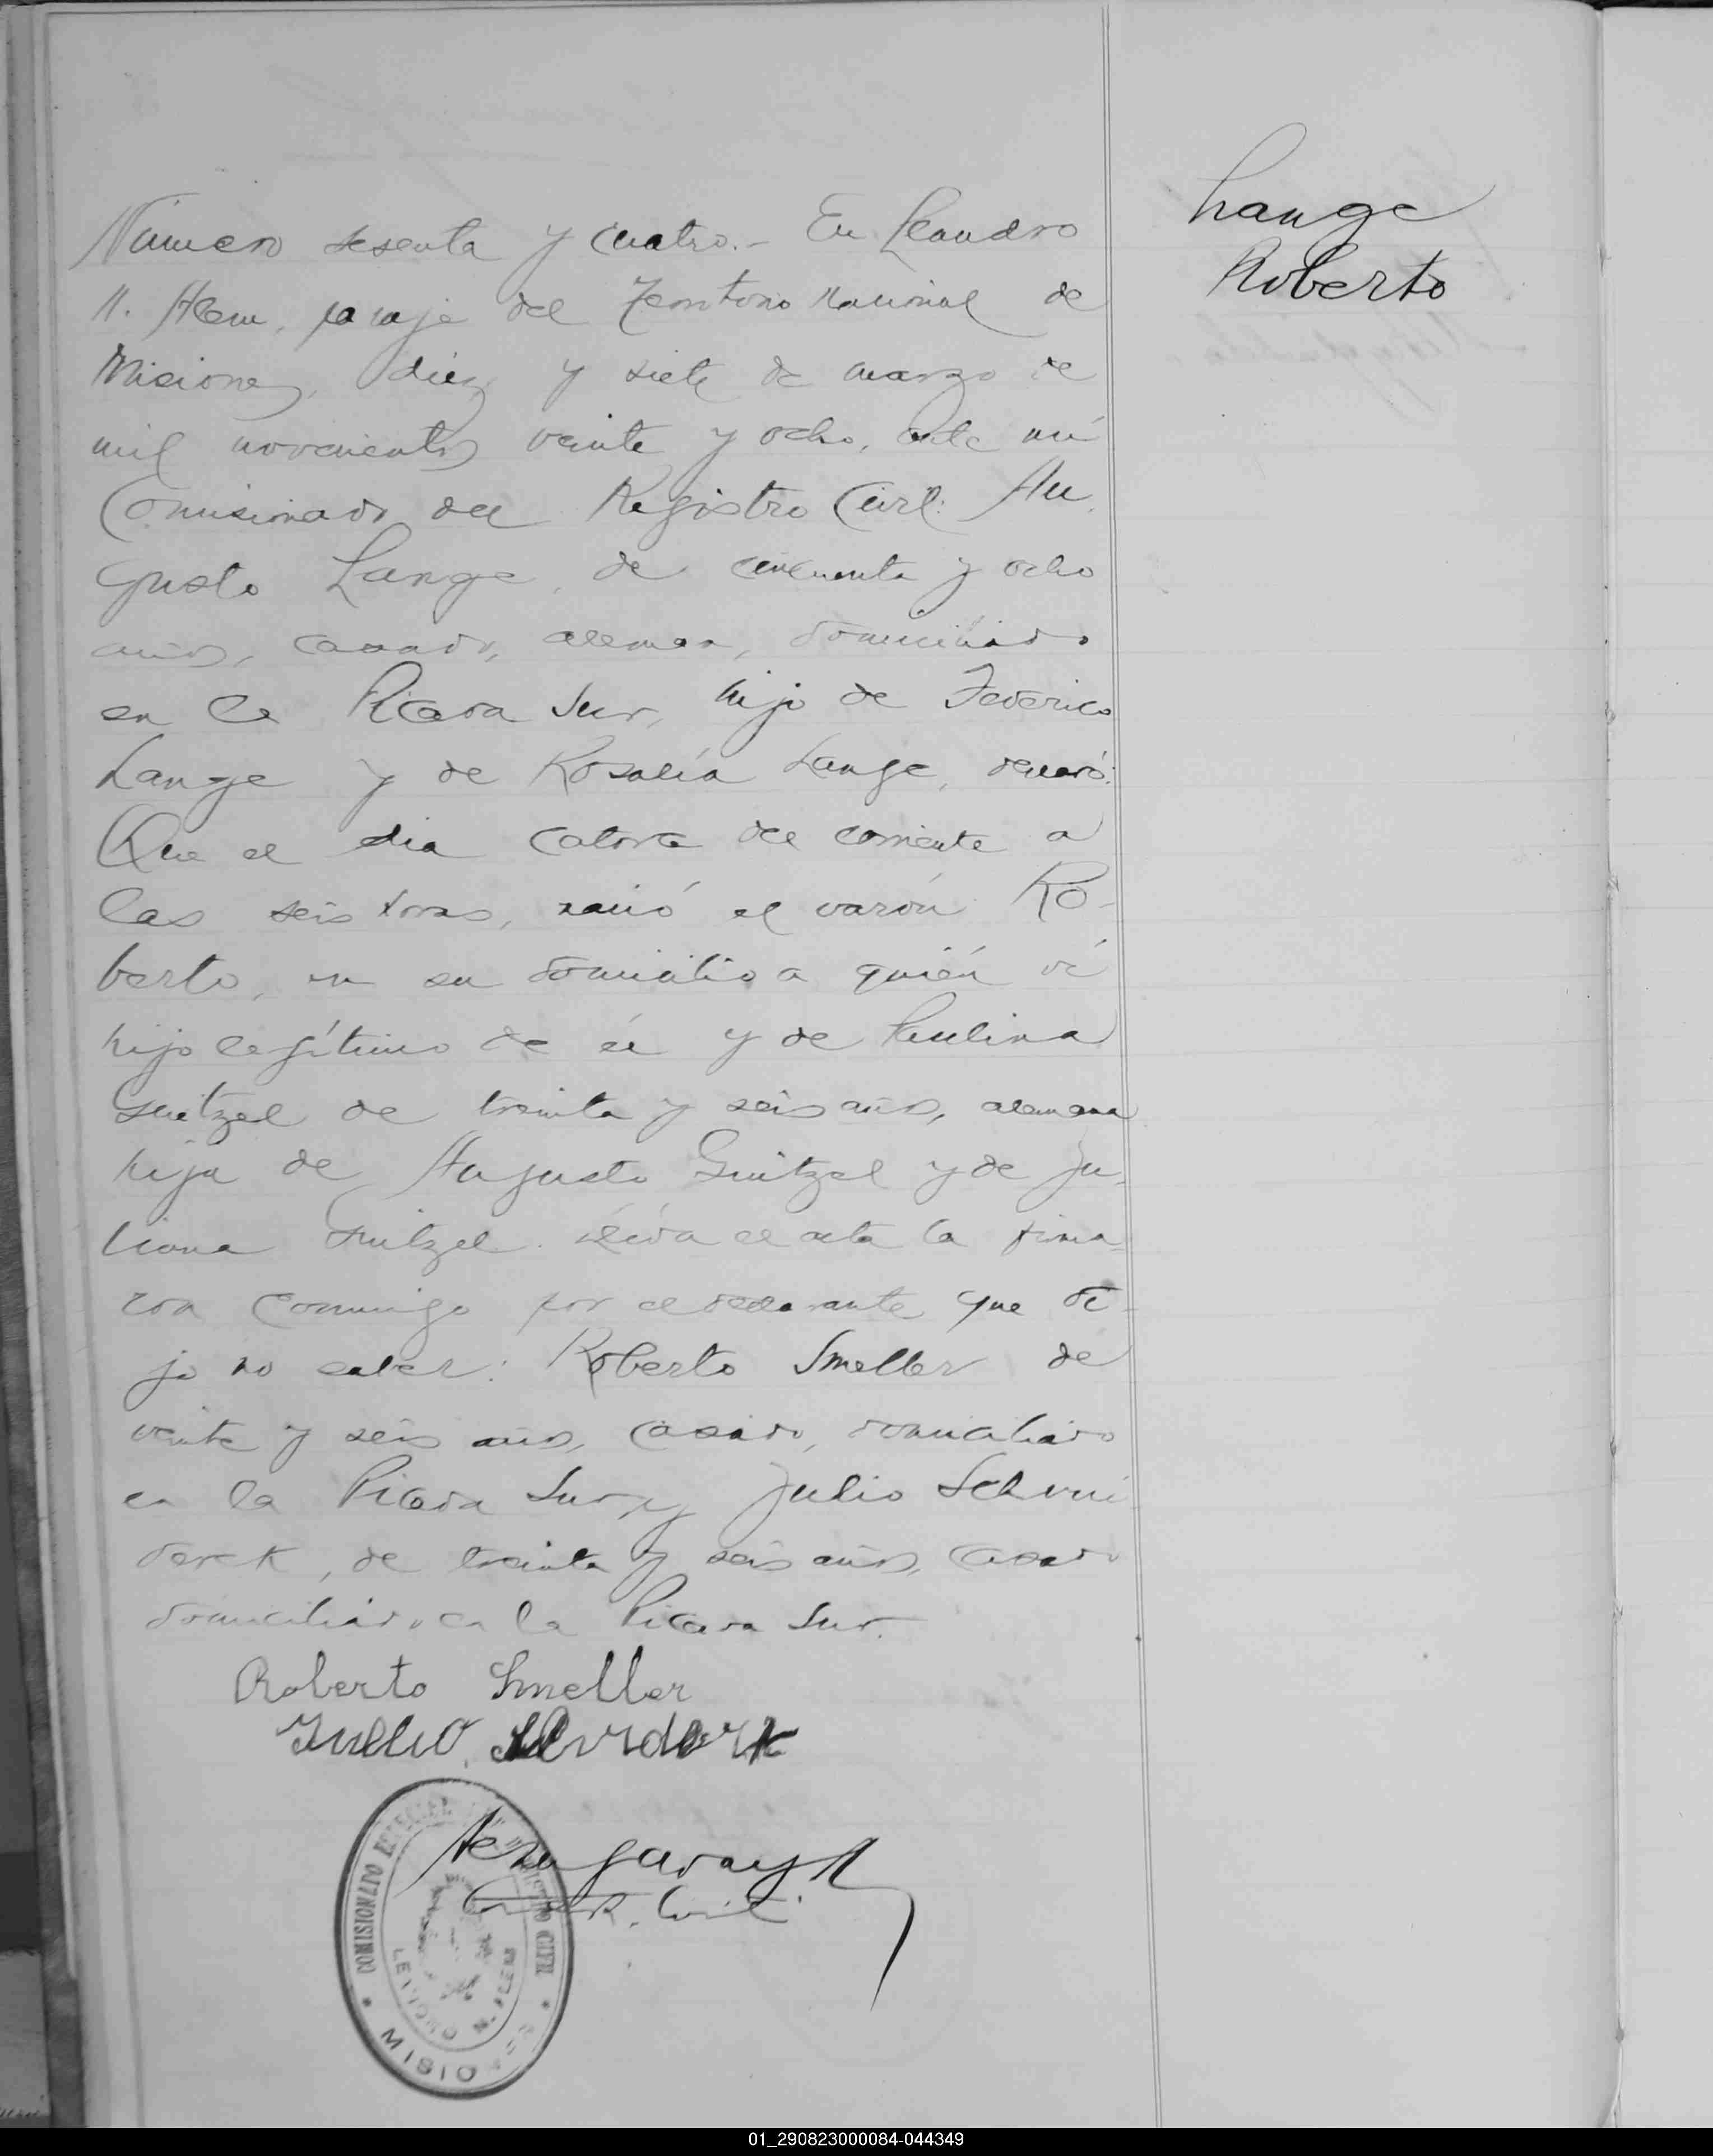 Lange
Roberto
Número sesenta y cuatro.- En Leandro
N. Alem, paraje del Territorio Nacional de
Misiones, diez y siete de marzo de
mil novecientos veinte y ocho, ante mí
Comisionado del Registro Civil: Au-
gusto Lange, de cincuenta y ocho
años, casado, aleman, domiciliado
en la Picada Sur, hijo de Federico
Lange y de Rosalía Lange, declaró:
Que el dia catorce del corriente a
las seis horas, nació el varón Ro-
berto, en su domicilio a quién ví
hijo legítimo de él y de Paulina
de treinta y seis años, alemana
hija de Augusto y de Ju-
liana Leída el acta la firma-
ron conmigo por el declarante que di-
jo no saber: Roberto Smeller de
veinte y seis años, casado, domiciliado
en la Picada Sur y Julio Schni
derek, de treinta y seis años, casado
domiciliado en la Picada Sur.
Roberto Smeller
Julio
R. Civil
COMISIONADO REGISTRO CIVIL
LEANDRO N. ALEM
MISIONES
01_290823000084-044349